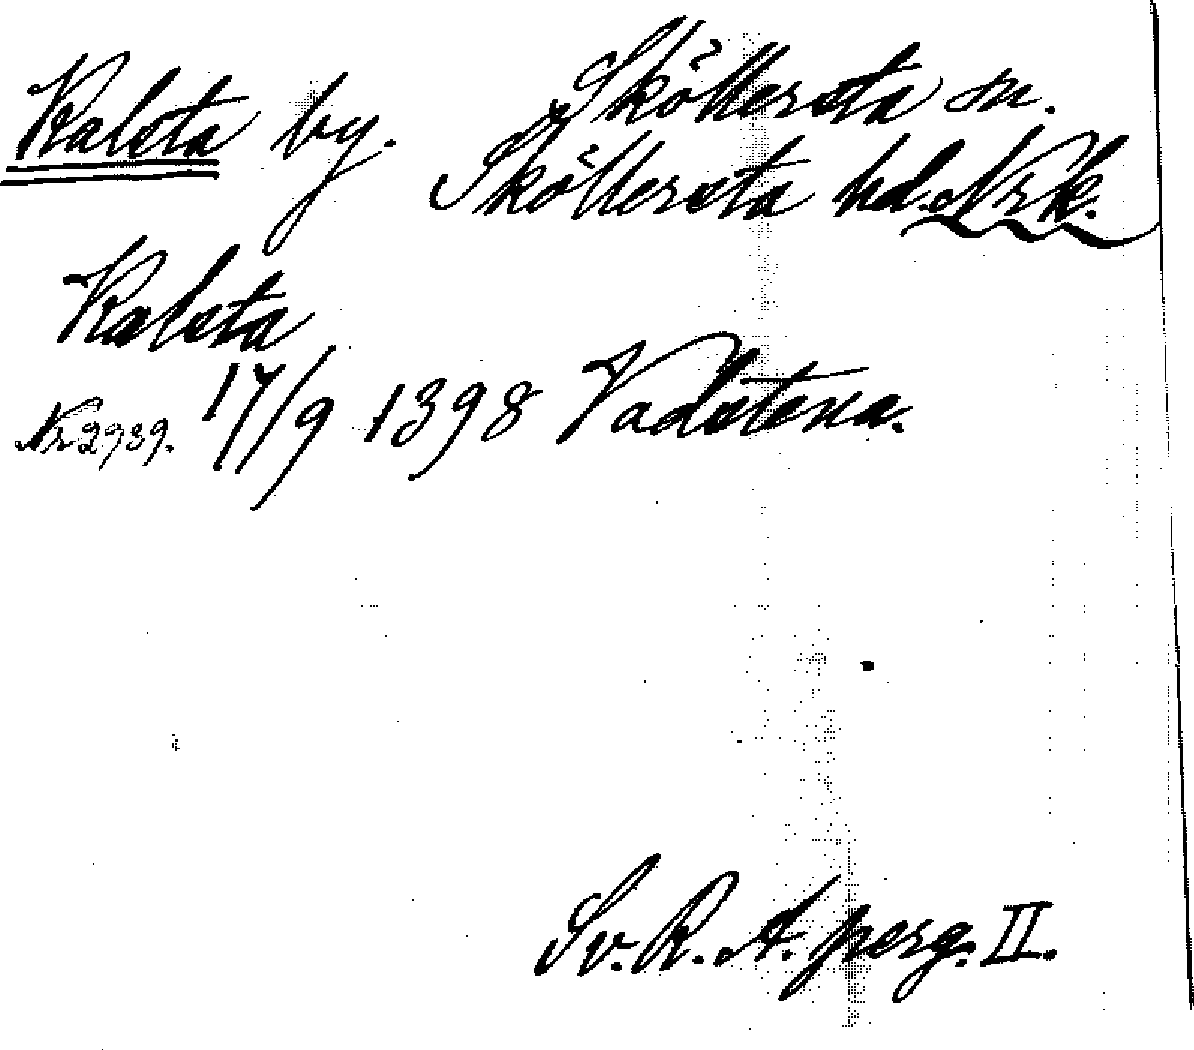 Kalsta by. Sköllersta sn.
Sköllersta hd. Nrk.
Kalsta
Nr 2939. 17/9 1398 Vadstena.
Sv. R. A. perg. II.